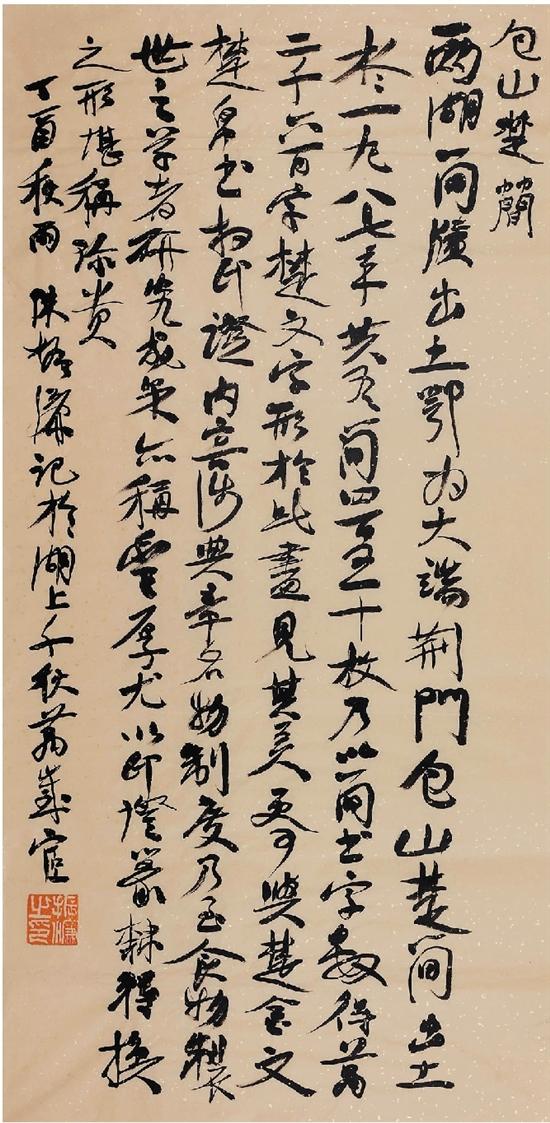 包山楚簡
两湖简牘出土鄂为大端荆門包山楚简出土
於一九八七年共简四百一十枚乃以简书字数得萬
二千六百字楚文字形於此盡見其更可與楚金文
楚帛书相印證内容涉典章名物制度乃至食物製
世之学者研究成果亦稱豐厚尤以印證篆隸得換
之形堪稱珍贵
丁酉秋雨 陈振濂记於湖上千秋萬歲宦
振濂之印